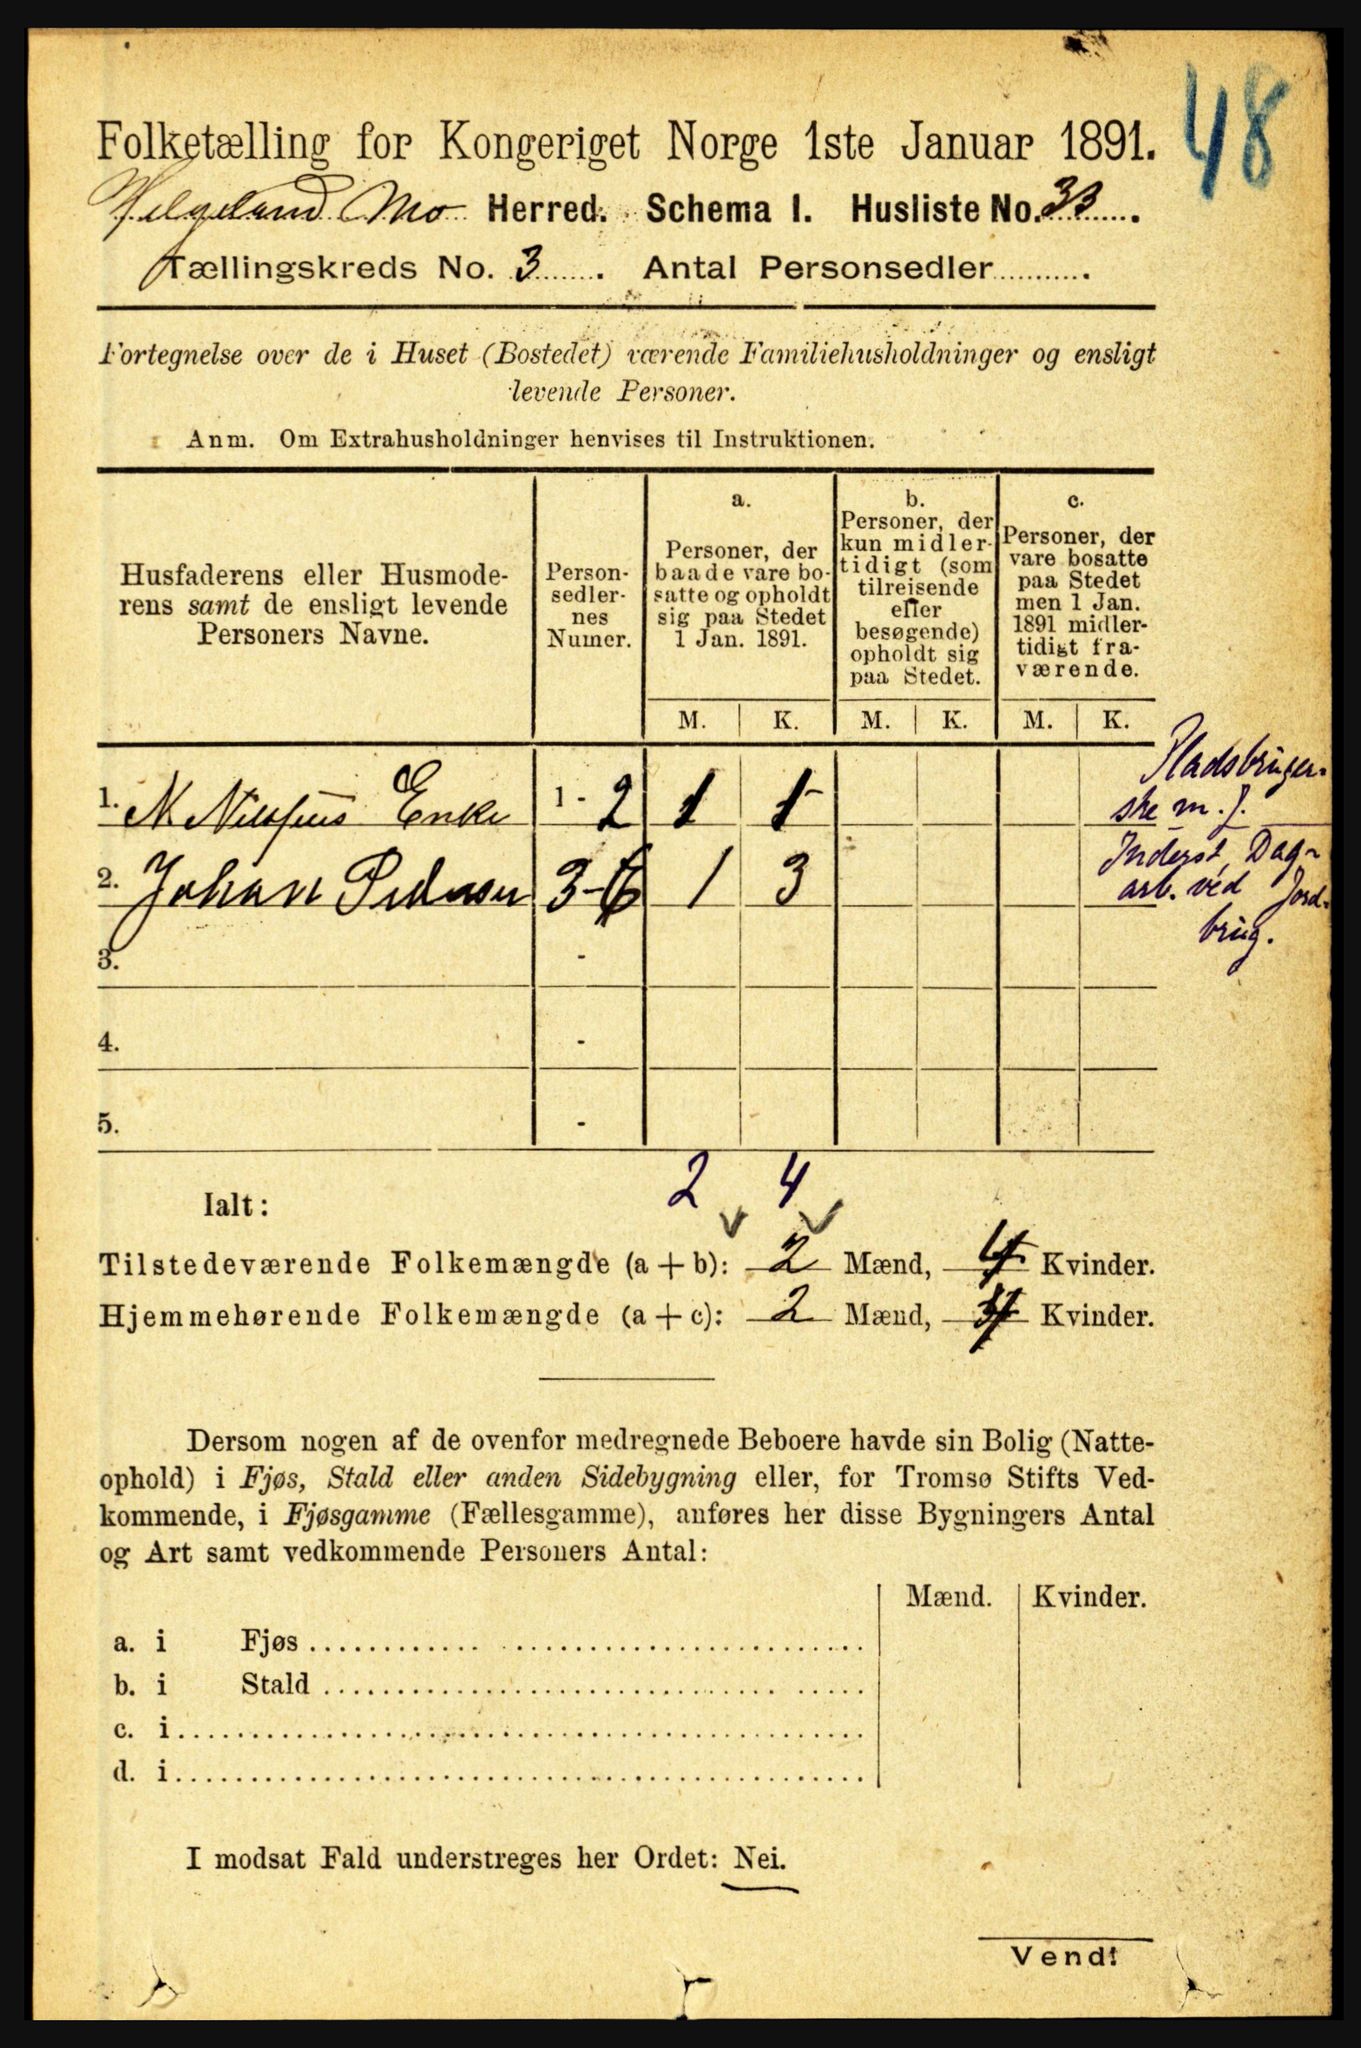 48
Folketælling for Kongeriget Norge 1ste Januar 1891.
Helgeland Mo Herred. Schema I. Husliste No. 33
Tællingskreds No. 3 Antal Personsedler
Fortegnelse over de i Huset (Bostedet) værende Familiehusholdninger og ensligt
levende Personer.
Anm. Om Extrahusholdninger henvises til Instruktionen.
Husfaderens eller Husmode-
rens samt de ensligt levende
Personers Navne.
Person-
sedler-
nes
Numer.
a.
Personer, der
baade vare bo-
satte og opholdt
sig paa Stedet
1 Jan. 1891.
b.
Personer, der
kun midler-
tidigt (som
tilreisende
eller
besøgende)
opholdt sig
paa Stedet.
c.
Personer, der
vare bosatte
paa Stedet
men 1 Jan.
1891 midler-
tidigt fra-
værende.
M. K. M. K. M. K.
1. N Enke 1 - 2 1 1
Pladsbruger-
ske m. J.
2. Johan Pedersen 3-6 1 3
Inderst, Dag-
arb. ved Jord-
brug.
3. -
4. -
5. -
2 4
Ialt:
Tilstedeværende Folkemængde (a + b): 2 Mænd, 4 Kvinder.
Hjemmehørende Folkemængde (a + c): 2 Mænd, 4 Kvinder.
Dersom nogen af de ovenfor medregnede Beboere havde sin Bolig (Natte-
ophold) i Fjøs, Stald eller anden Sidebygning eller, for Tromsø Stifts Ved-
kommende, i Fjøsgamme (Fællesgamme), anføres her disse Bygningers Antal
og Art samt vedkommende Personers Antal:
Mænd. Kvinder.
a. i Fjøs
b. i Stald
c. i
d. i
I modsat Fald understreges her Ordet: Nei.
Vend!